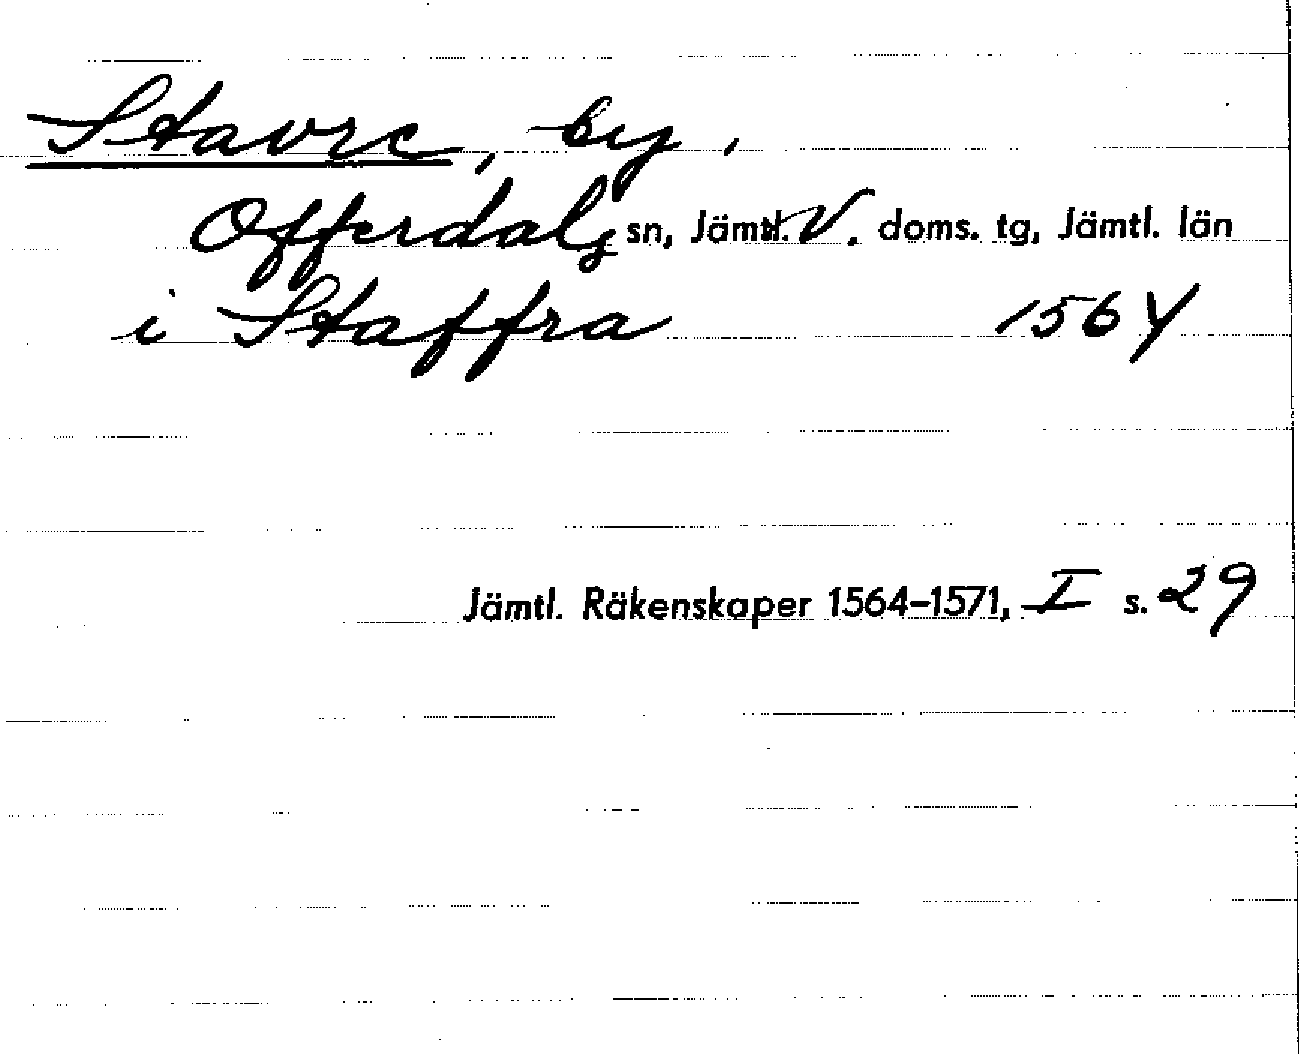 Stavre, by,
Offerdals sn, Jämtl. V. doms. tg, Jämtl. län
i Staffra 1564
Jämtl. Räkenskaper 1564-1571, I s. 29